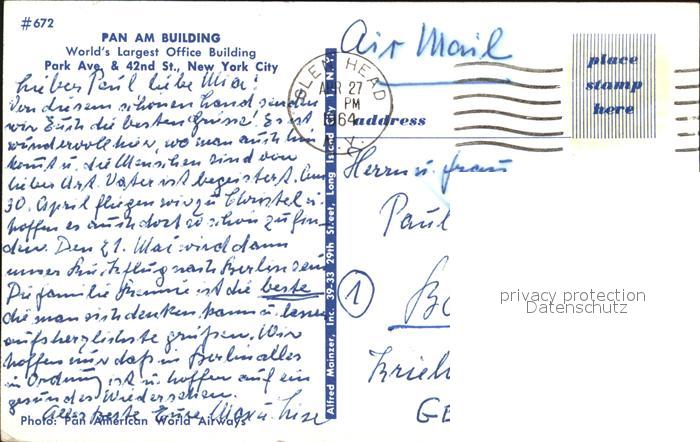 #672
PAN AM BUILDING
World's Largest Office Building
Park Ave. & 42nd St., New York City
Lieber Paul, liebe Mia!
Von diesem schönen Land senden
wir Euch die besten Grüsse! Es ist
wundervoll hier, wo man auch hin
kommt u. die Menschen sind von
lieber Art. Vater ist begeistert. Am
30. April fliegen wir zu Christel u.
hoffen es auch dort so schön zu fin-
den. Den 21. Mai wird dann
unser Rückflug nach Berlin sein
Die Familie ist die beste
die man sich denken kann u. lassen
aufs herzlichste grüßen. Wir
hoffen nur daß in Berlin alles
in Ordnung ist u. hoffen auf ein
gesundes Wiedersehen.
Alles beste Eure Max u. Lise
Photo: Pan American World Airways
Alfred Mainzer, Inc. 39-33 29th Street, Long Island City 1, N.Y.
Air Mail
GLEN HEAD
APR 27
PM
1964
N.Y.
place
stamp
here
address
Herrn u. Frau
Paul
1
privacy protection
Datenschutz